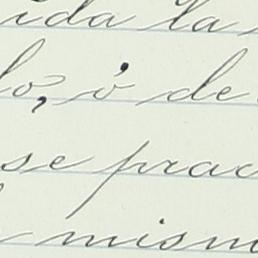 ida la
lo, ó de
se prac
mism